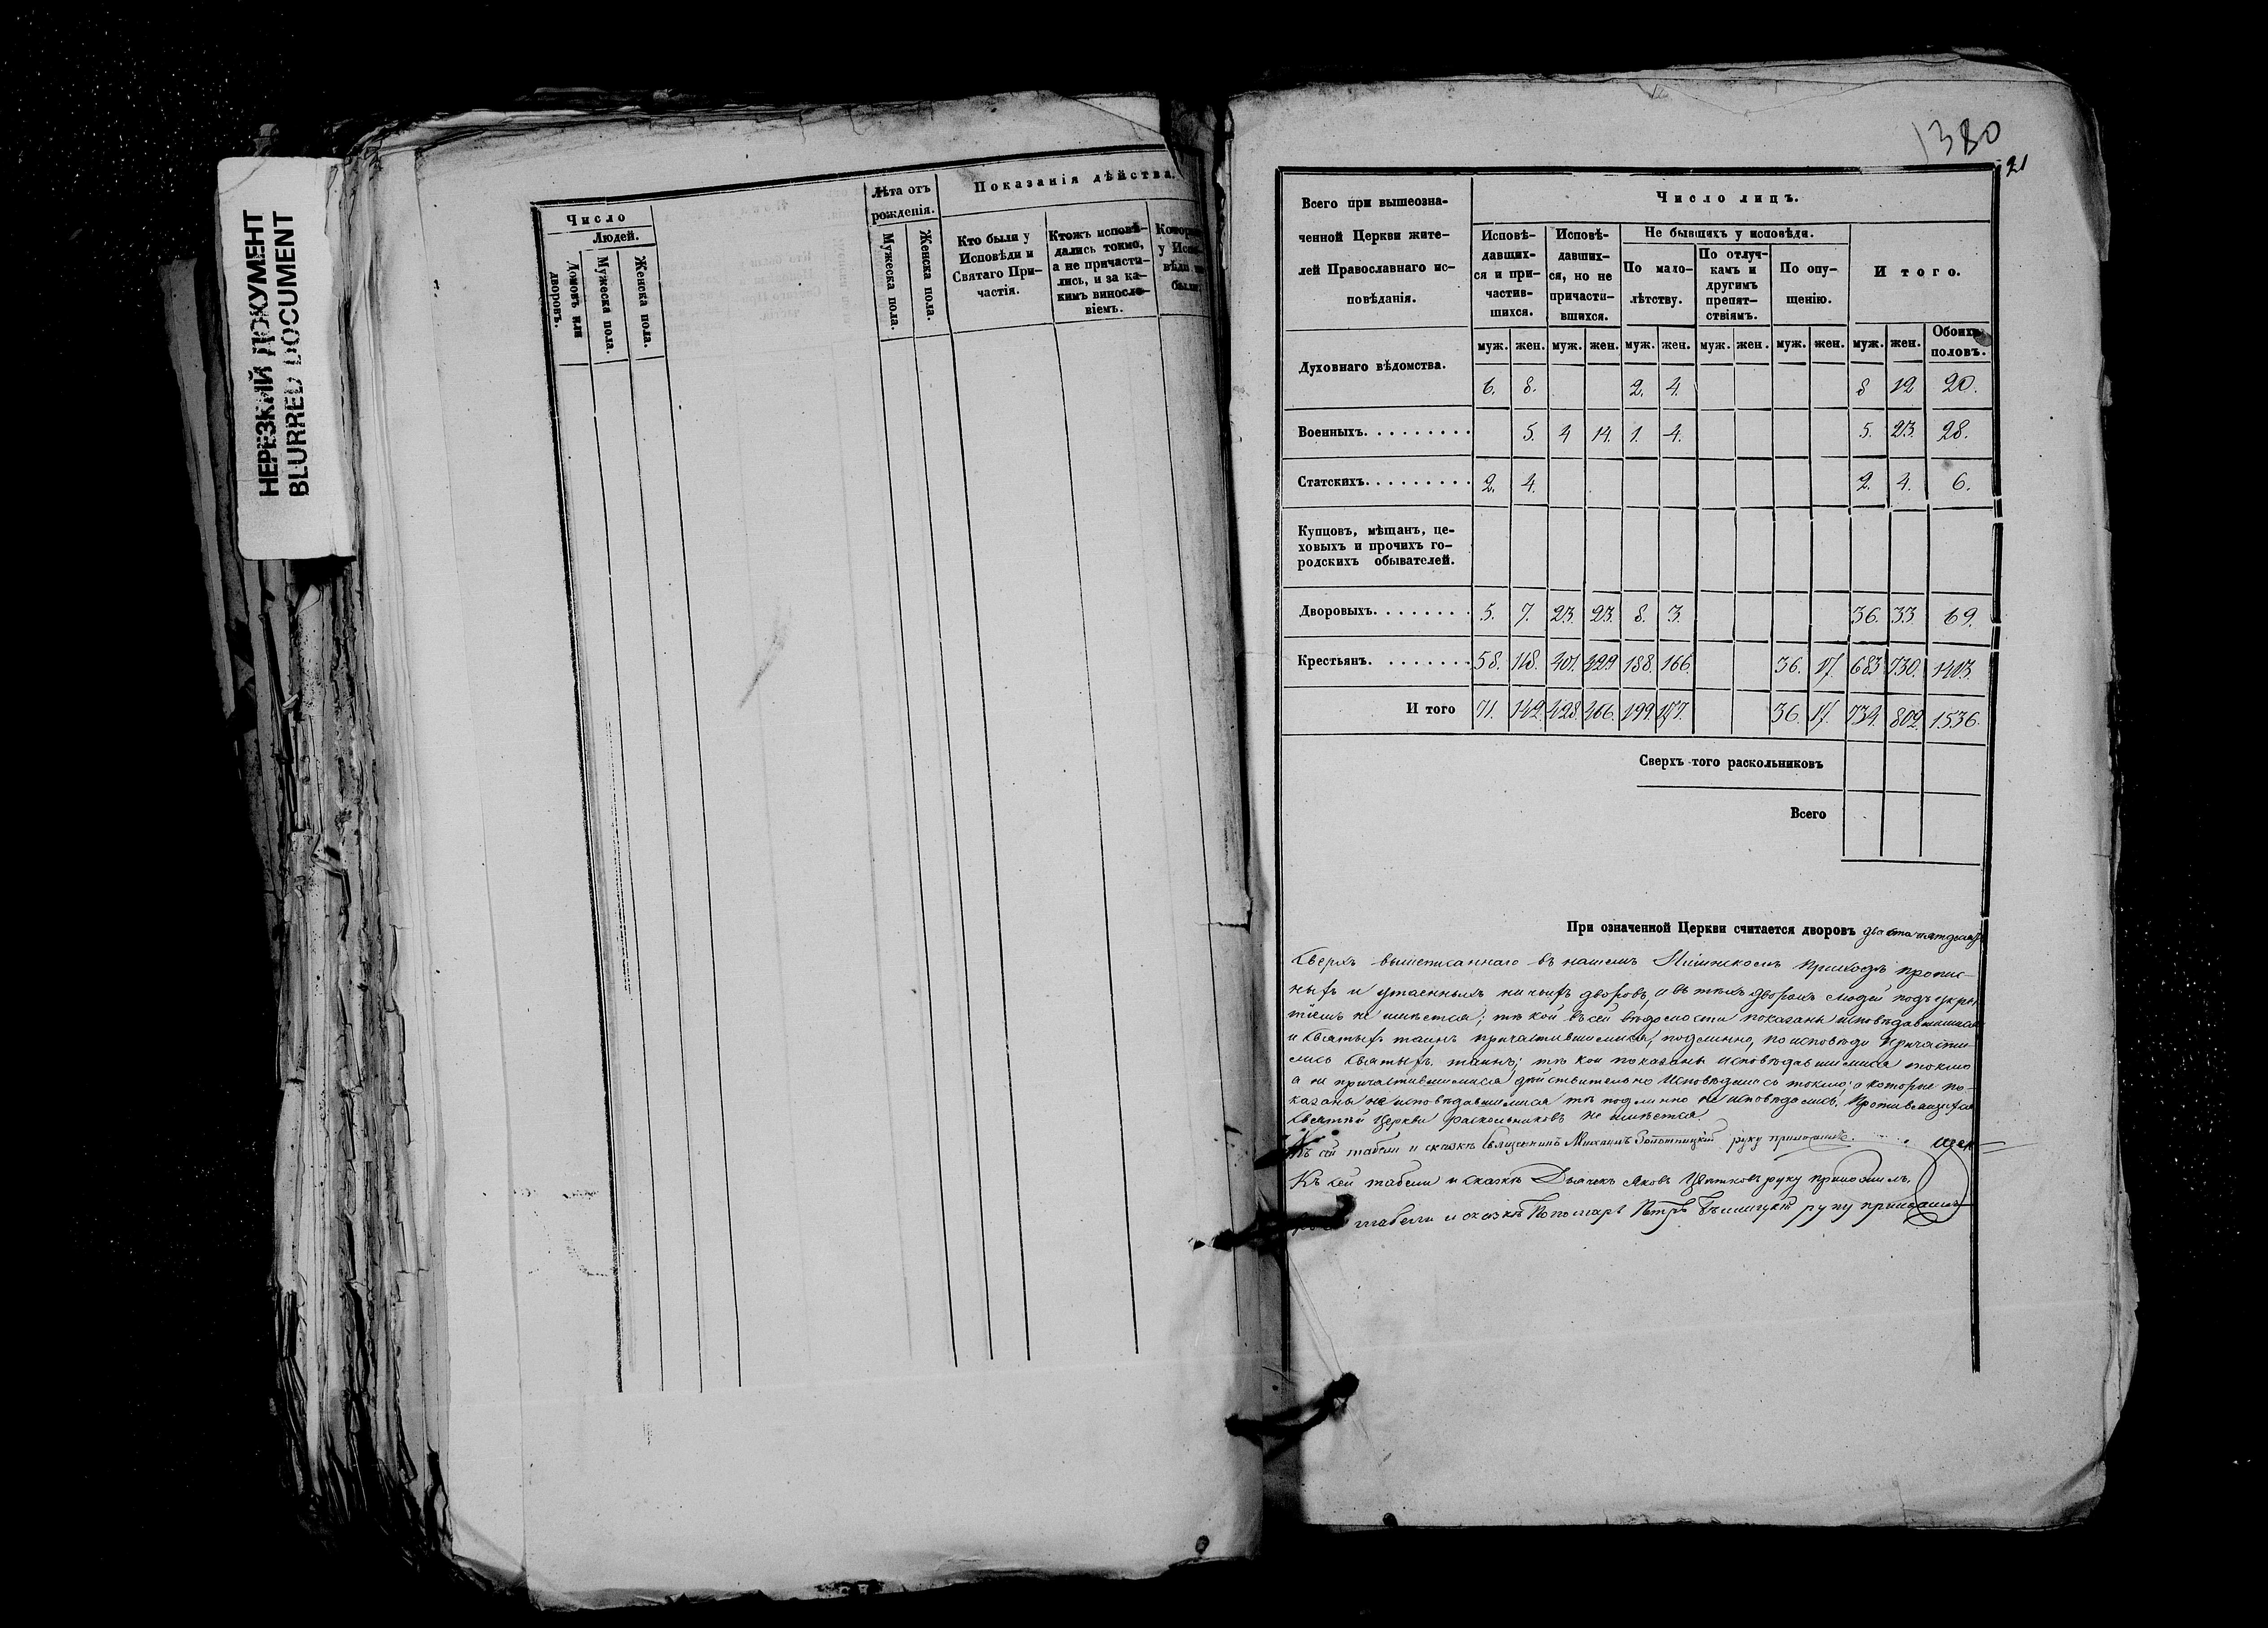 НЕРЕЗКИЙ ДОКУМЕНТ
BLURRED DOCUMENT
Число
Людей.
Домовъ или дворовъ.
Мужеска пола.
Женска пола.
Лѣта отъ рожденія.
Мужеска пола.
Женска пола.
Показанія дѣйства.
Кто были у Исповѣди и Святаго При-
частія.
Ктожъ исповѣ-
дались токмо,
а не причасти-
лись, и за ка-
кимъ винословіемъ.
1380
21
Всего при вышеозна-
ченной Церкви жите-
лей Православнаго ис-
повѣданія.
Число лицъ.
Исповѣ-
давших-
ся и при-
частив-
шихся.
Исповѣ-
давших-
ся, но не
причасти-
вшихся.
Не бывшихъ у исповѣди.
По мало-
лѣтству.
По отлуч-
камъ и
другимъ
препят-
ствіямъ.
По опу-
щенію.
Итого.
муж. жен. муж. жен. муж. жен. муж. жен. муж. жен. муж. жен. Обоихъ половъ.
Духовнаго вѣдомства. 6. 8. 2. 4. 8 12 20.
Военныхъ. 5. 4 14. 1. 4. 5. 23. 28.
Статскихъ. 2. 4. 2. 4. 6.
Купцовъ, мѣщанъ, це-
ховыхъ и прочихъ го-
родскихъ обывателей.
Дворовыхъ. 5. 7. 23. 23. 8. 3. 36. 33 69.
Крестьянъ. 58. 118. 401. 429 188. 166. 36. 17. 683 730. 1413.
И того 71. 142. 428. 466. 199. 177. 36. 17. 734. 802. 1536.
Сверхъ того раскольниковъ
Всего
При означенной Церкви считается дворовъ двѣсти
Сверхъ вышеписаннаго въ нашемъ приходѣ пропис-
ныхъ и утаенныхъ ни чьихъ дворовъ, и въ тѣхъ дворахъ людей подъ укры-
тіемъ не имѣется; тѣ кои въ сей вѣдомости показаны исповѣдавшимися
и Святыхъ таинъ причастившимися, подлинно, по исповѣди причасти-
лись Святыхъ таинъ; тѣ кои показаны исповѣдавшимися токмо
а не причастившимися дѣйствительно исповѣдались токмо; а которые по-
казаны не исповѣдавшимися тѣ подлинно не исповѣдались.
Святѣй Церкви раскольниковъ не имѣется
Къ сей табели и сказкѣ Священникъ Михаилъ руку приложилъ.
Къ сей табели и сказкѣ Дьячекъ Яковъ Цвѣтковъ руку приложилъ.
табели и сказкѣ Пономарь Петръ руку приложилъ